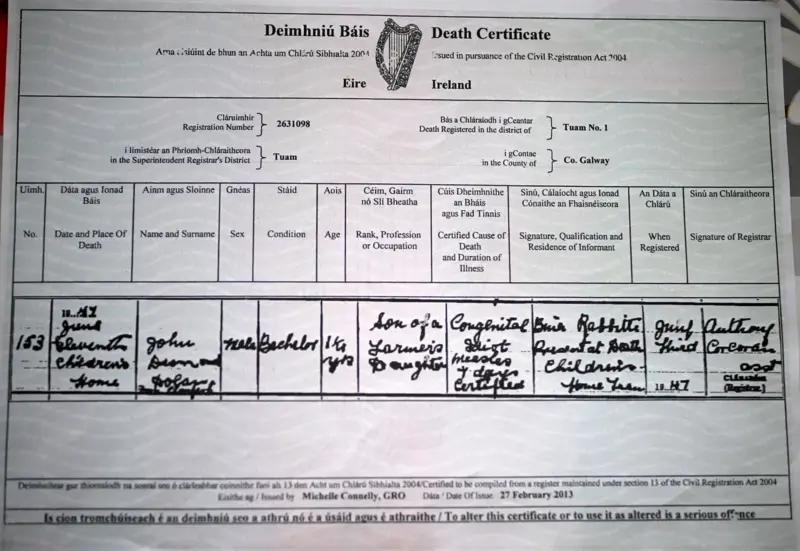 Deimhniú Báis
Death Certificate
Arna eisiúint de bhun an Achta um Chlárú Sibhialta 2004
Issued in pursuance of the Civil Registration Act 2004
Éire
Ireland
Cláruimhir
Registration Number
2631098
Bás a Chláraíodh i gCeantar
Death Registered in the district of
Tuam No. 1
i limistéar an Phríomh-Chláraitheora
in the Superintendent Registrar's District
Tuam
i gContae
in the County of
Co. Galway
Uimh.
No.
Dáta agus Ionad
Báis
Date and Place Of
Death
Ainm agus Sloinne
Name and Surname
Gnéas
Sex
Stáid
Condition
Aois
Age
Céim, Gairm
nó Slí Bheatha
Rank, Profession
or Occupation
Cúis Dheimhnithe
an Bháis
agus Fad Tinnis
Certified Cause of
Death
and Duration of
Illness
Sínú, Cáilíocht agus Ionad
Cónaithe an Fhaisnéiseora
Signature, Qualification and
Residence of Informant
An Dáta a
Chlárú
When
Registered
Síniú an Chláraitheora
Signature of Registrar
153
19..47
June
Eleventh
Children's
Home
John
Desmond
Male
Bachelor
yrs
Son of a
Farmer's
Daughter
Congenital
Idiot
Measles
7 days
Certified
Present at Death
Children's
Home Tuam
19..47
Anthony
Corcoran
asst
(Registrar)
Deimhnítear gur tiomsaíodh na sonraí seo ó chlárleabhar coinnithe faoi alt 13 den Acht um Chlárú Sibhialta 2004/Certified to be compiled from a register maintained under section 13 of the Civil Registration Act 2004
Eisithe ag / Issued by Michelle Connelly, GRO Dáta / Date Of Issue 27 February 2013
Is cion tromchúiseach é an deimhniú seo a athrú nó é a úsáid agus é athraithe / To alter this certificate or to use it as altered is a serious offence